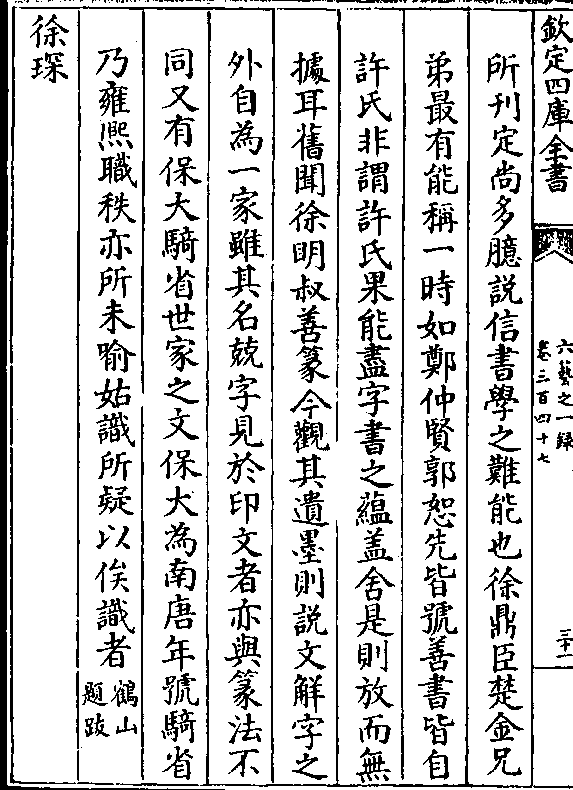 欽定四庫全書
六藝之一錄
卷三百四十七
三十一
所刊定尚多臆説信書學之難能也徐鼎臣楚金兄
弟最有能稱一時如鄭仲賢郭恕先皆號善書皆自
許氏非謂許氏果能盡字書之藴盖舍是則放而無
據耳舊聞徐明叔善篆今觀其遺墨則説文解字之
外自為一家雖其名兢字見於印文者亦與篆法不
同又有保大騎省世家之文保大為南唐年號騎省
乃雍熈職秩亦所未喻姑識所疑以俟識者鶴山題跋
徐琛